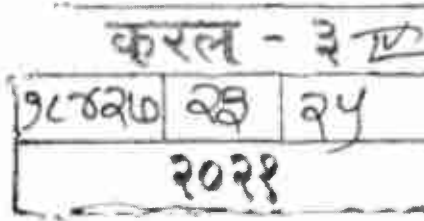 करल - ३ IV
१८४२७ २३ २५
२०२१